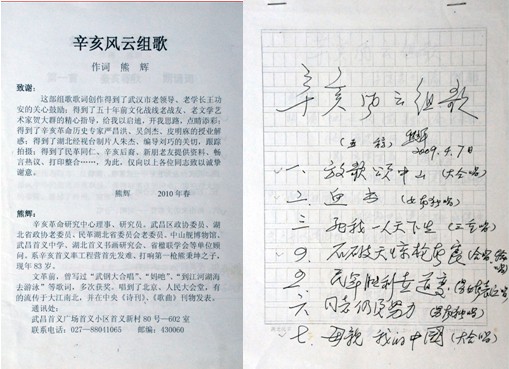 辛亥风云组歌
作词 熊 辉
致谢：
这部组歌歌词创作得到了武汉市老领导、老学长王功
安的关心鼓励；得到了五十年前文化战线老战友、老文学艺
术家贺大群的精心指导，给我以启地，开我思路，点睛添彩；
得到了辛亥革命历史专家严昌洪、吴剑杰、皮明庥的授业解
惑；得到了湖北经视台制片人朱杰、编导刘巧的关切，跟踪
拍摄；得到了民革同仁、辛亥后裔、新朋老友提供资料、畅
言热议、打印整合……为此，仅向以上各位同志致以诚挚
谢意。
熊辉 2010 年春
熊辉：
辛亥革命研究中心理事、研究员，武昌区政协委员、湖
北省政协老委员、民革湖北省委员会老委员、中山舰博物馆、
武昌首义中学、湖北首义书画研究会、省楹联学会等单位顾
问。系辛亥首义率工程营首先发难、打响第一枪熊秉坤之子，
现年 83 岁。
文革前，曾写过“武钢大合唱”、“妈吔”、“到江河湖海
去游泳”等歌词，多次获奖，唱到了北京、人民大会堂，有
的流传于大江南北，并在中央《诗刊》、《歌曲》刊物发表。
通讯处：
武昌首义广场首义小区首义新村 80 号—602 室
联系电话：027—88041065 邮编：430060
辛亥风云组歌
(五稿) 熊辉
2009.4.7日
一、放歌颂中山(大合唱)
二、
三、
四、石破天惊枪声震
五、
六、同志仍须努力
七、母亲 我的中国(大合唱)